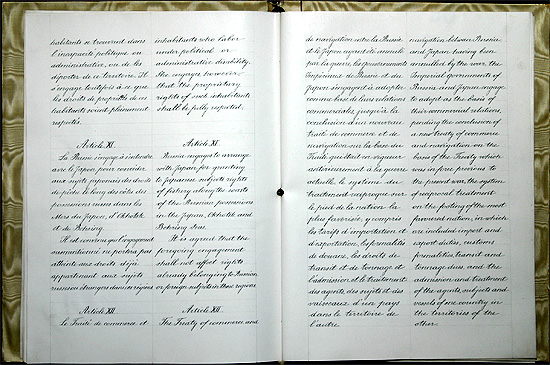 habitants se trouvent dans
l'incapacité politique ou
administrative, ou de les
déporter de ce territoire. Il
s'engage toutefois à ce que
les droits de propriété de ces
habitants soient pleinement
respectés.
Article XI.
La Russie s'engage à s'entendre
avec le Japon pour concéder
aux sujets japonais des droits
de pêche le long des côtes des
possessions russes dans les
Mers du Japon, d'Okhotsk et
de Behring.
Il est convenu que l'engagement
susmentionné ne portera pas
atteinte aux droits déjà
appartenant aux sujets
russes ou étrangers dans ces régions.
Article XII.
Le Traité de commerce et
inhabitants who labor
under political or
administrative disability.
She engages however
that the proprietary
rights of such inhabitants
shall be fully respected.
Article XI.
Russia engages to arrange
with Japan for granting
to Japanese subjects rights
of fishery along the coasts
of the Russian possessions
in the Japan, Okhotsk and
Behring Seas.
It is agreed that the
foregoing engagement
shall not affect rights
already belonging to Russian
or foreign subjects in those regions.
Article XII.
The Treaty of commerce and
de navigation entre la Russie
et le Japon ayant été annulé
par la guerre, les gouvernements
Impériaux de Russie et du
Japon s'engagent à adopter
comme base de leurs relations
commerciales, jusqu'à la
conclusion d'un nouveau
traité de commerce et de
navigation sur la base du
Traité qui était en vigueur
antérieurement à la guerre
actuelle, le système du
traitement réciproque sur
le pied de la nation la
plus favorisée, y compris
les tarifs d'importation et
d'exportation, les formalités
de douane, les droits de
transit et de tonnage et
l'admission et le traitement
des agents, des sujets et des
vaisseaux d'un pays
dans le territoire de
l'autre.
navigation between Russia
and Japan having been
annulled by the war, the
Imperial Governments of
Russia and Japan engage
to adopt as the basis of
their commercial relations,
pending the conclusion of
a new treaty of commerce
and navigation on the
basis of the Treaty which
was in force previous to
the present war, the system
of reciprocal treatment
on the footing of the most
favoured nation, in which
are included import and
export duties, customs
formalities, transit and
tonnage dues, and the
admission and treatment
of the agents, subjects and
vessels of one country in
the territories of the
other.